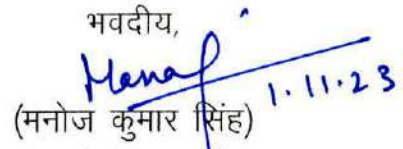 भवदीय,
Manoj 1.11.23
(मनोज कुमार सिंह)